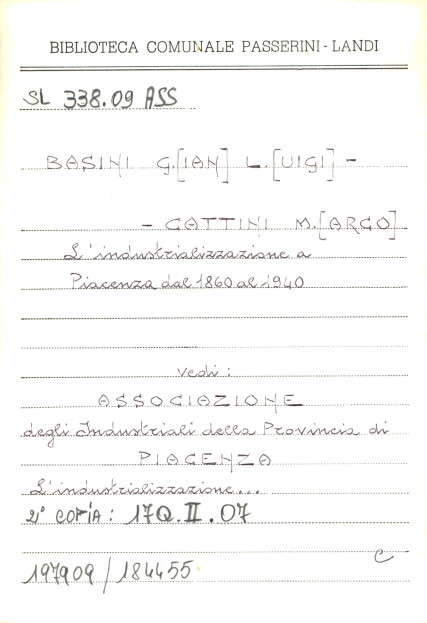 BIBLIOTECA COMUNALE PASSERINI - LANDI
SL 338.09 ASS
BASINI G.[IAN] L.[UIGI] -
- CATTINI M.[ARCO]
L'industrializzazione a
Piacenza dal 1860 al 1940
vedi :
ASSOCIAZIONE
degli Industriali della Provincia di
PIACENZA
L'industrializzazione...
2° COPIA : 17Q.II.07
C
197909 / 184455